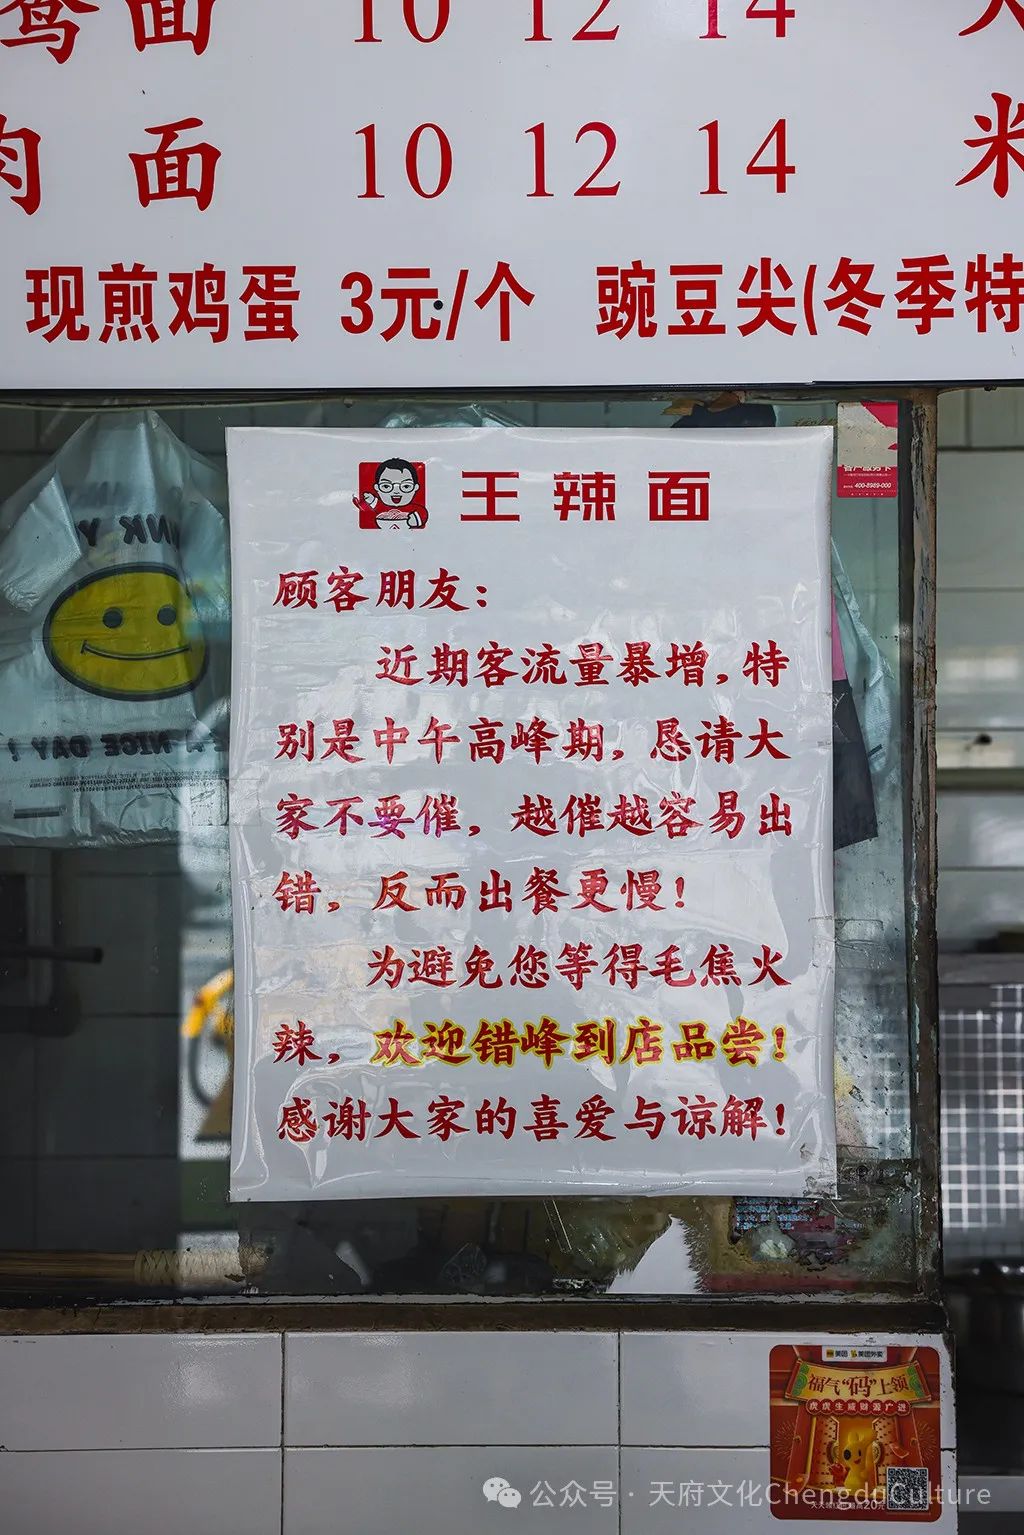 鸳面 10 12 14
肉面 10 12 14 米
现煎鸡蛋 3元/个 豌豆尖(冬季特
王辣面
顾客朋友：
近期客流量暴增，特
别是中午高峰期，恳请大
家不要催，越催越容易出
错，反而出餐更慢！
为避免您等得毛焦火
辣，欢迎错峰到店品尝！
感谢大家的喜爱与谅解！
客户服务卡
400-8989-000
NICE DAY!
美团 美团外卖
福气“码”上领
虎虎生威财源广进
公众号 · 天府文化ChengduCulture